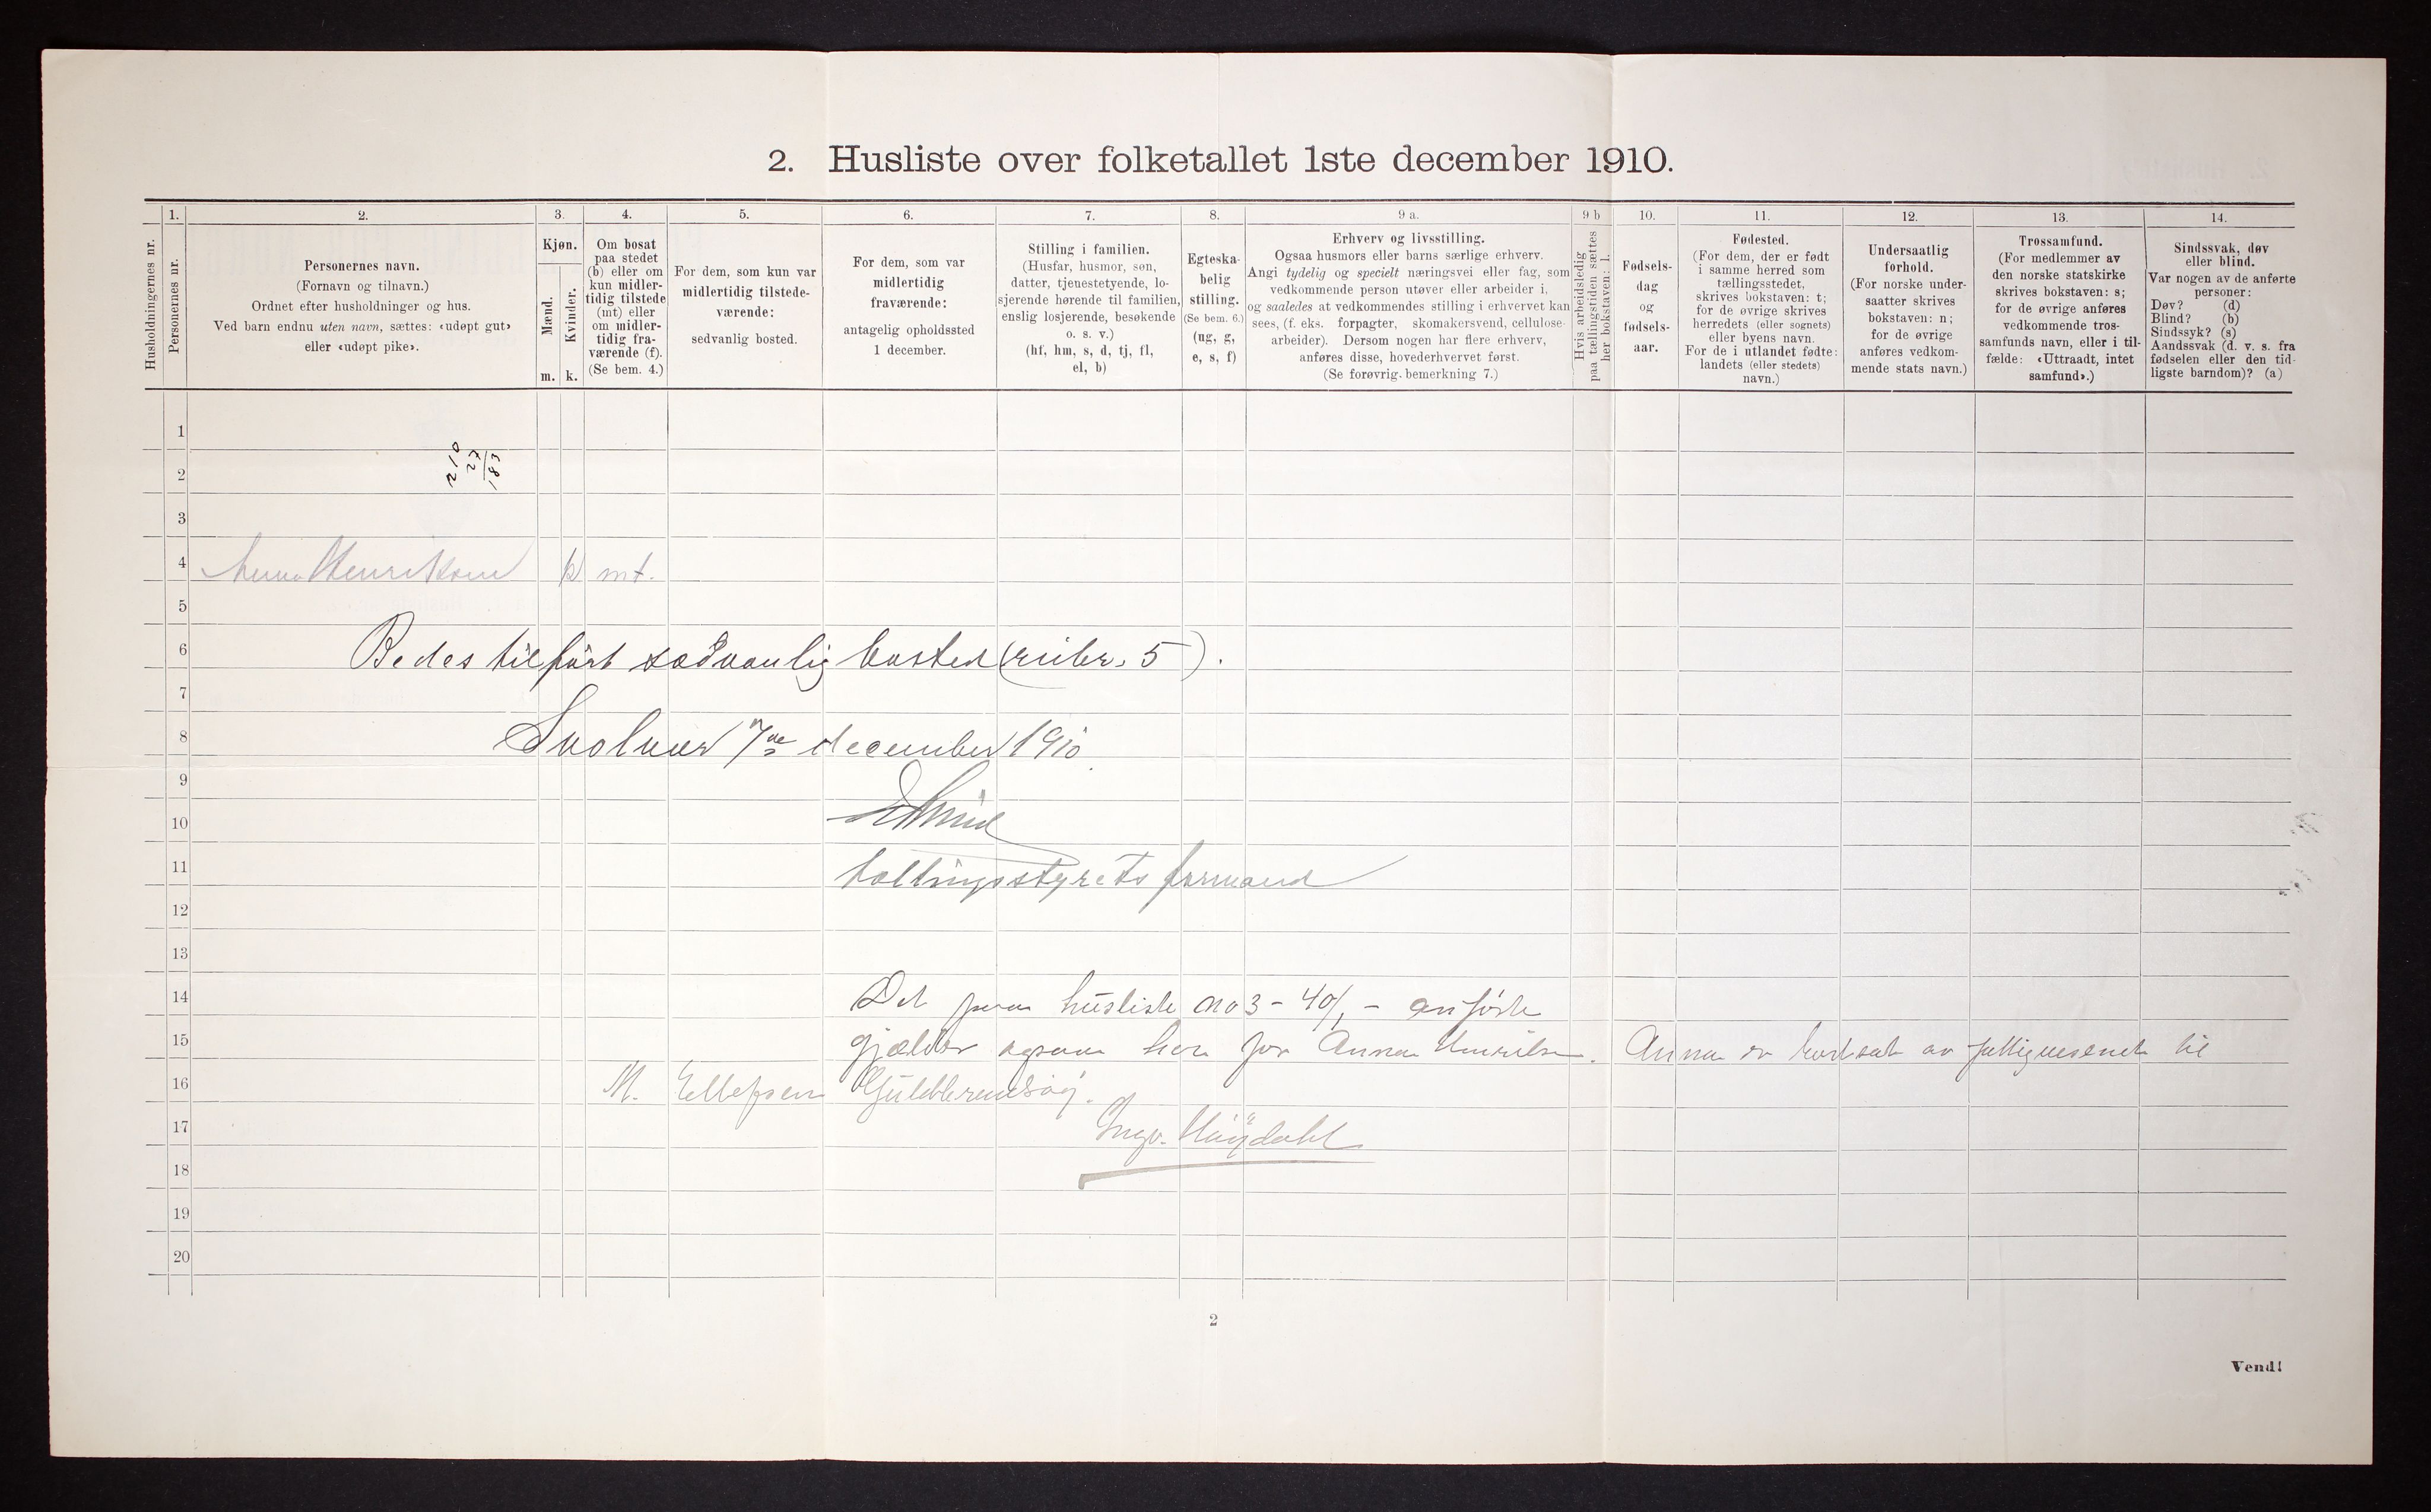 2. Husliste over folketallet 1ste december 1910.
1. 2. 3. 4. 5. 6. 7. 8. 9 a. 9 b 10. 11. 12. 13. 14.
Husholdningernes nr.
Personernes nr.
Personernes navn.
(Fornavn og tilnavn.)
Ordnet efter husholdninger og hus.
Ved barn endnu uten navn, sættes: «udøpt gut»
eller «udøpt pike».
Kjøn.
Mænd.
Kvinder.
m. k.
Om bosat
paa stedet
(b) eller om
kun midler-
tidig tilstede
(mt) eller
om midler-
tidig fra-
værende (f).
(Se bem. 4.)
For dem, som kun var
midlertidig tilstede-
værende:
sedvanlig bosted.
For dem, som var
midlertidig
fraværende:
antagelig opholdssted
1 december.
Stilling i familien.
(Husfar, husmor, søn,
datter, tjenestetyende, lo-
sjerende hørende til familien,
enslig losjerende, besøkende
o. s. v.)
(hf, hm, s, d, tj, fl,
el, b)
Egteska-
belig
stilling.
(Se bem. 6.)
(ug, g,
e, s, f)
Erhverv og livsstilling.
Ogsaa husmors eller barns særlige erhverv.
Angi tydelig og specielt næringsvei eller fag, som
vedkommende person utøver eller arbeider i,
og saaledes at vedkommendes stilling i erhvervet kan
sees, (f. eks. forpagter, skomakersvend, cellulose-
arbeider). Dersom nogen har flere erhverv,
anføres disse, hovederhvervet først.
(Se forøvrig bemerkning 7.)
Hvis arbeidsledig
paa tællingstiden sættes
her bokstaven: l.
Fødsels-
dag
og
fødsels-
aar.
Fødested.
(For dem, der er født
i samme herred som
tællingsstedet,
skrives bokstaven: t;
for de øvrige skrives
herredets (eller sognets)
eller byens navn.
For de i utlandet fødte:
landets (eller stedets)
navn.)
Undersaatlig
forhold.
(For norske under-
saatter skrives
bokstaven: n;
for de øvrige
anføres vedkom-
mende stats navn.)
Trossamfund.
(For medlemmer av
den norske statskirke
skrives bokstaven: s;
for de øvrige anføres
vedkommende tros-
samfunds navn, eller i til-
fælde: «Uttraadt, intet
samfund».)
Sindssvak, døv
eller blind.
Var nogen av de anførte
personer:
Døv? (d)
Blind? (b)
Sindssyk? (s)
Aandssvak (d. v. s. fra
fødselen eller den tid-
ligste barndom)? (a)
1
210
27
183
2
3
4 Anna Henriksen k mt.
5
6 Bedes tilført sædvanlig bosted (rubr. 5).
7
8 Svolvær 7de december 1910.
9
10
11 tællingsstyrets formand
12
13
14 Det paa husliste no 3 - 40/1 - anførte
15 gjælder ogsaa her for Anna Henriksen. Anna er bortsat av fattigvesenet til
16 M. Ellefsen Guldbrandsøy.
17 Ingv. Høydahl
18
19
20
2
Vend!